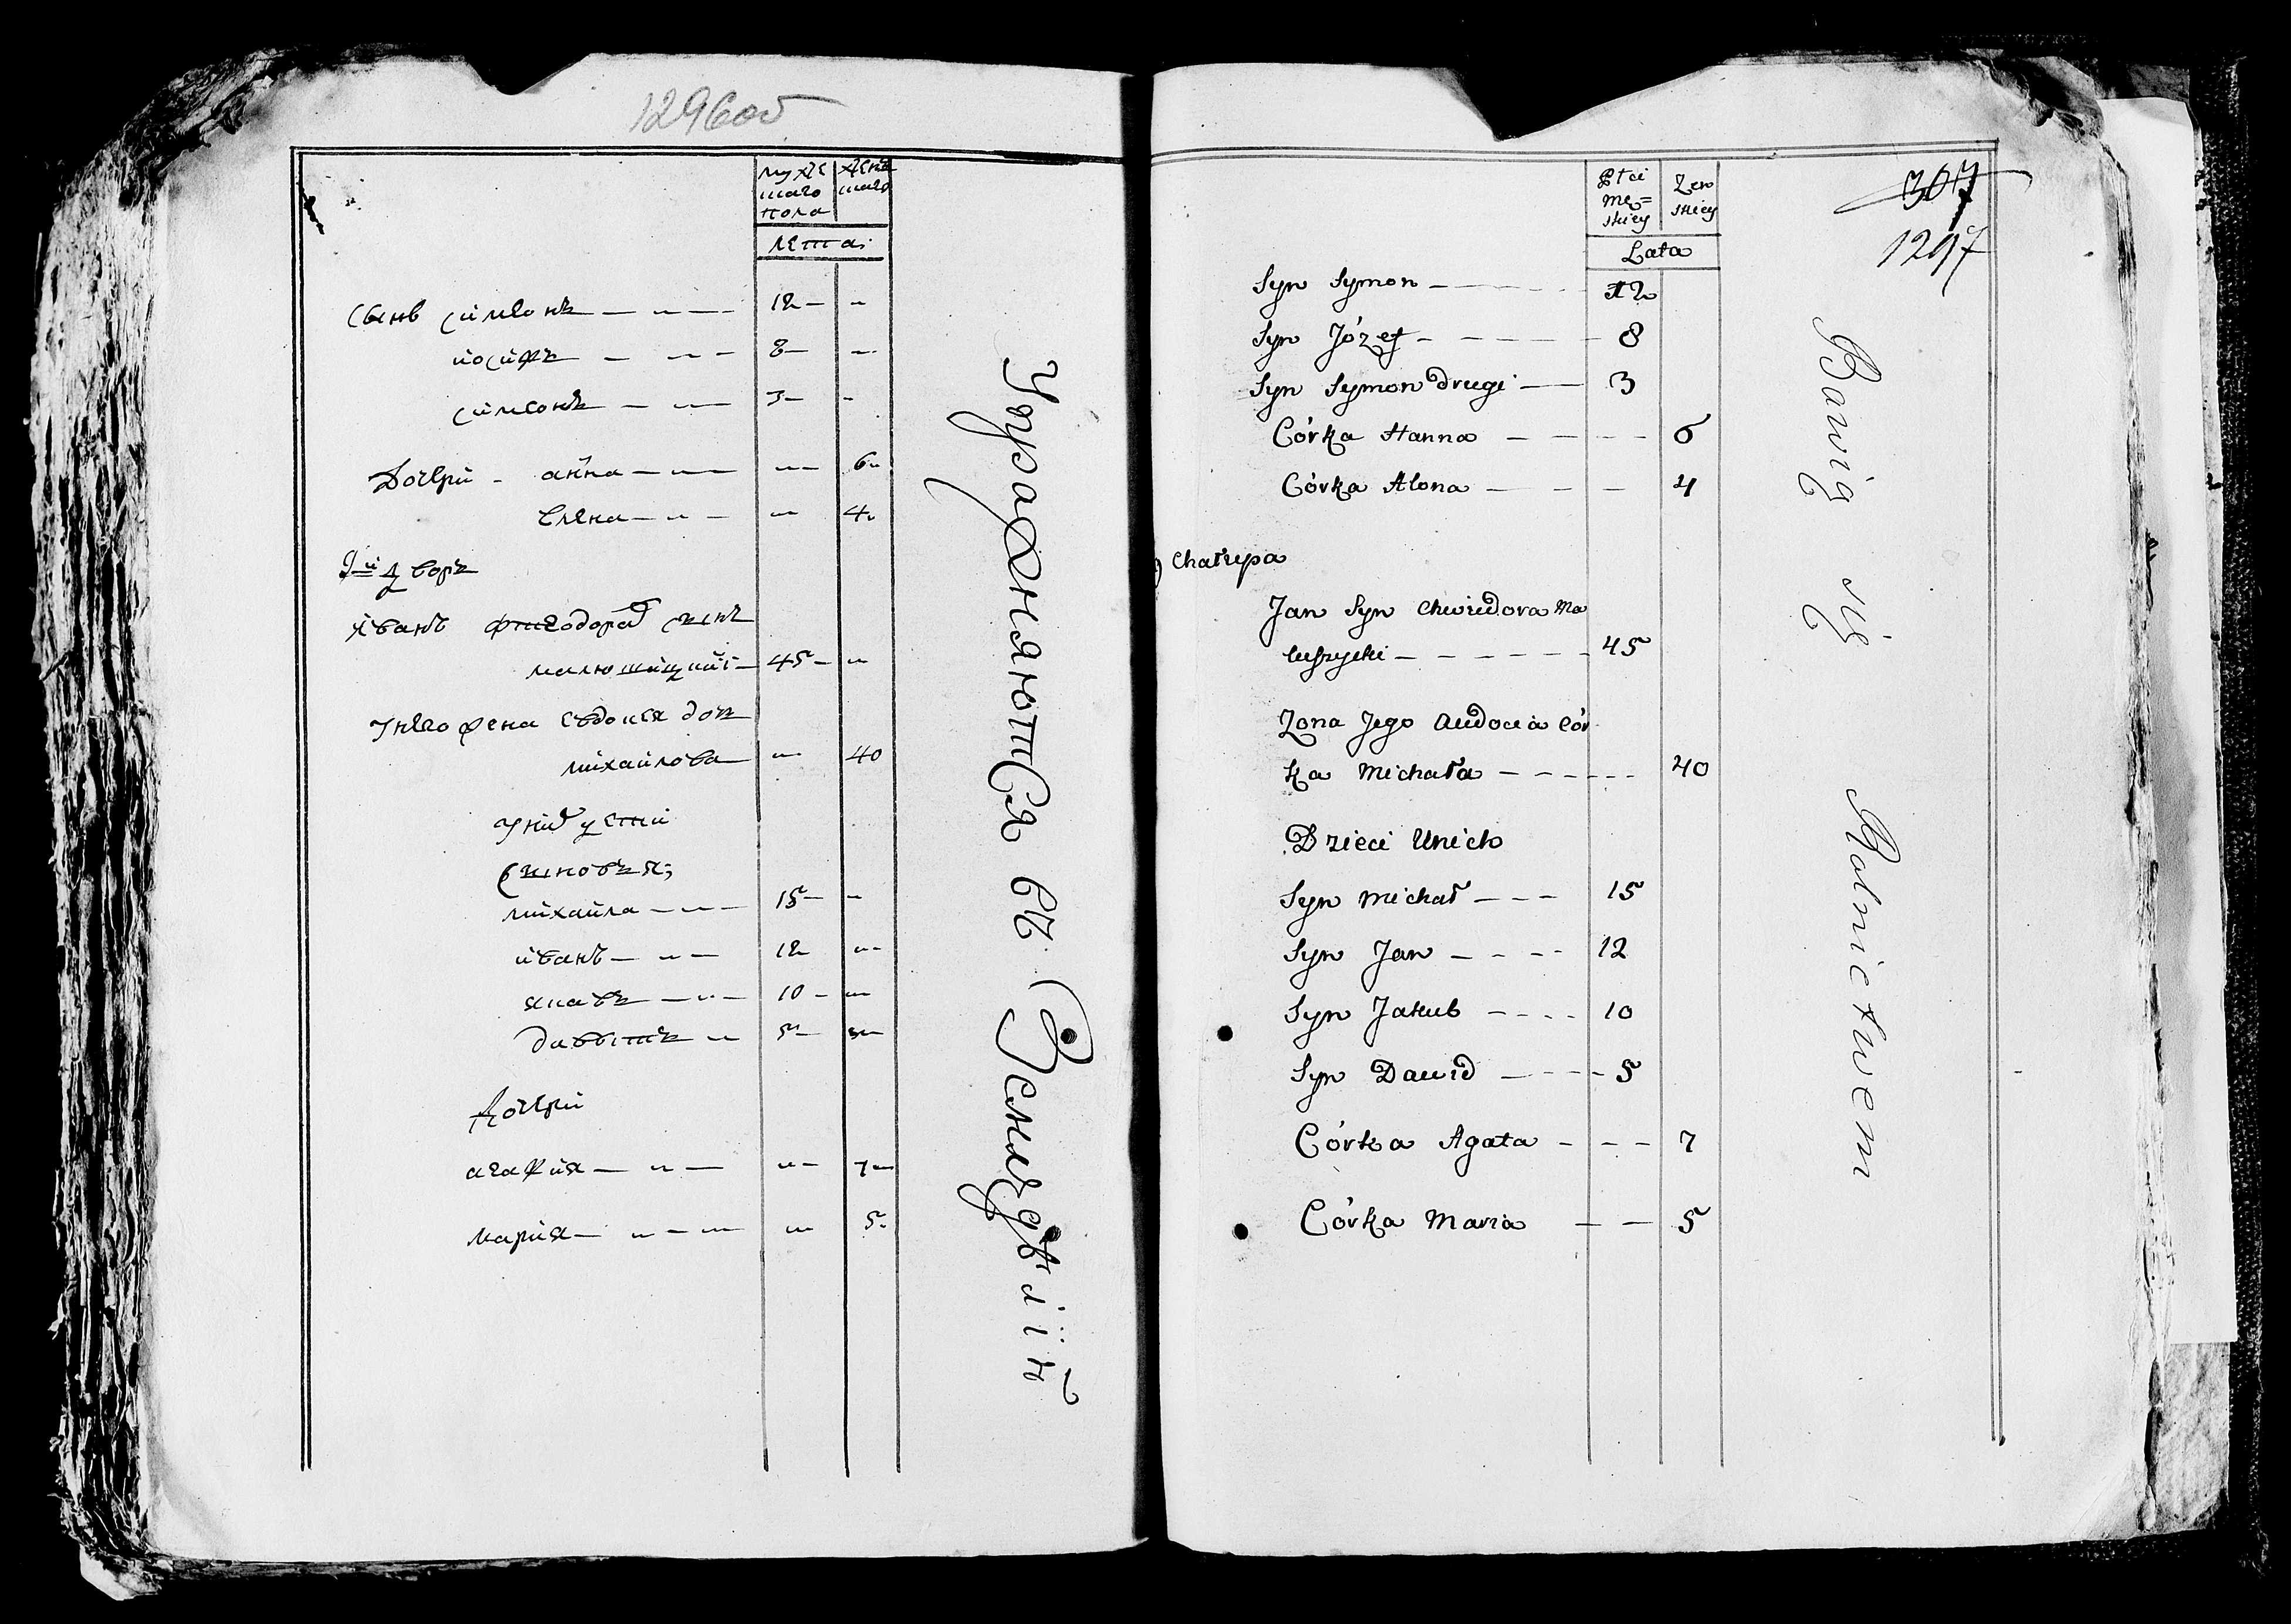 1296об
муже
шаго
пола
женс
шаго
лета:
сынъ симеонъ — „ — 12 — „
иосифъ — „ — 8 — „
симеонъ — „ — 3 — „
Дочери - анна — „ — „ — 6 „
елена — „ — „ 4 „
9й дворъ
иванъ фтеодоров сынъ
малюшицкий — 45 — „
унего жена евдокея доч
михайлова — „ 40
у них дети
сыновья;
михайла — „ — 15 — „
иванъ — „ — 12 „ —
яковъ — „ — 10 — „
давытъ „ 5 —
Дочери
агафия — „ — „ — 7 —
мария — „ — „ — „ 5 -
Упражняются въ Земледѣліи
307
1297
Płci
mę=
skiey
Żeń
skiey
Lata
Syn Symon — 12
Syn Józef - — 8
Syn Symon drugi — 3
Córka Hanna — 6
Córka Alona — 4
Chałupa
Jan Syn Chwiedora Ma
luszycki — 45
Żona Jego Audocia Cór
ka Michała — 40
Dzieci Unich
Syn Michał — 15
Syn Jan — 12
Syn Jakub — 10
Syn Dawid — 5
Córka Agata — 7
Córka Maria — 5
Bawią się Rolnictwem